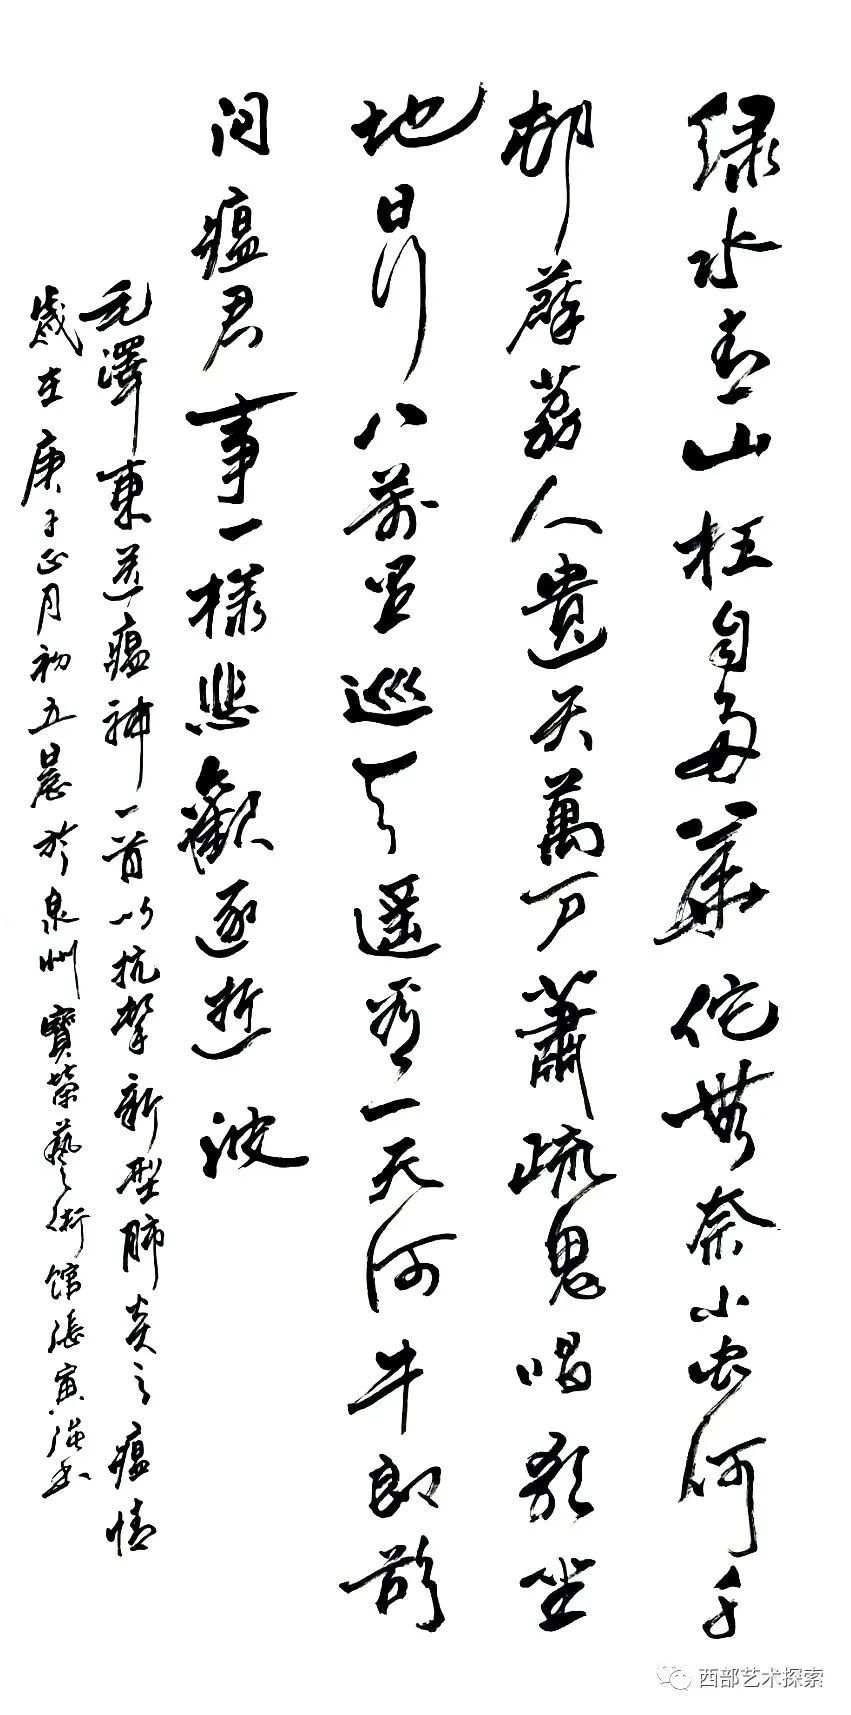 绿水青山枉自多華佗無奈小虫何千
邨薜荔人遺矢萬户蕭疏鬼唱歌坐
地日行八萬里巡天遥看一天河牛郎欲
问瘟君事一樣悲歡逐逝波
毛澤東送瘟神一首以抗擊新型肺炎之瘟情
歲在庚子正月初五晨於泉州寶榮藝術館張寅强书
西部艺术探索